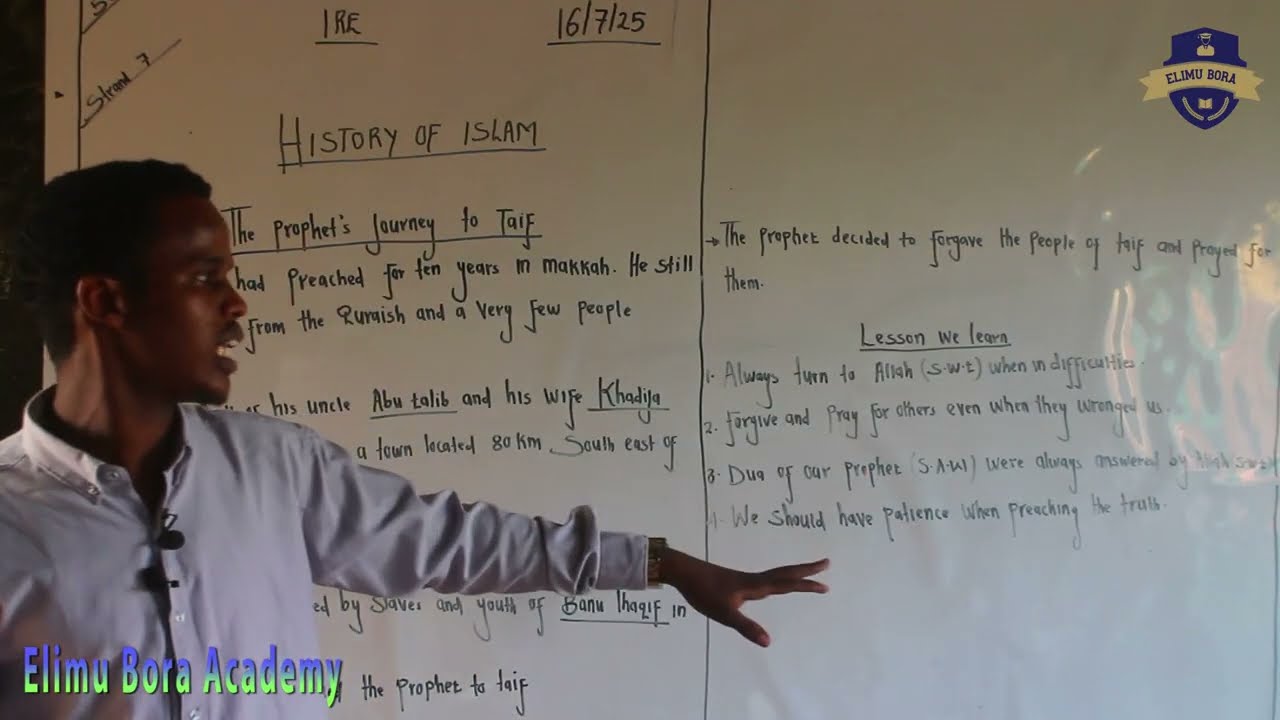 S
Strand 7
IRE
16/7/25
HISTORY OF ISLAM
The prophet's Journey to Taif
had Preached for ten years in makkah. He still
from the Quraish and a very few people
his uncle Abu talib and his wife Khadija
a town located 80 Km South east of
ed by Slaves and youth of Banu thaqif in
the Prophet to taif
→ The prophet decided to forgave the people of taif and prayed for
them.
Lesson we learn
1. Always turn to Allah (S.w.t) when in difficulties.
2. forgive and Pray for others even when they wronged us.
3. Dua of our prophet (S.A.W) were always answered by Allah s.w.t
4. We should have patience when preaching the truth.
ELIMU BORA
Elimu Bora Academy